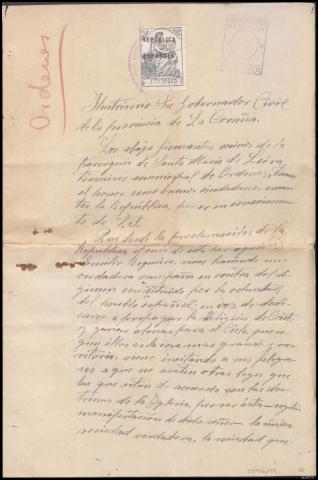 Ordenes
REPÚBLICA
ESPAÑOLA
Ilustrísimo Sr. Gobernador Civil
de la provincia de La Coruña.
Los abajo firmantes, vecinos de la
parroquia de Santa María de Leira,
término municipal de Ordenes, tienen
el honor, como buenos ciudadanos, aman-
tes la República, poner en conocimien-
to de V. I.
Que desde la proclamación de la
República el cura de esta parroquia
viene haciendo una
verdadera campaña en contra del ré-
gimen constituido por la voluntad
del pueblo español, en vez de dedi-
carse a propagar la religión de Cristo
y ganar almas para el Cielo, que se-
gún ellos es la cosa mas grande y me-
ritoria, viene incitando a sus feligre-
ses a que no acaten otras leyes que
las que estén de acuerdo con las doc-
trinas de la Iglesia, por ser ésta - según
manifestación de dicho señor - la única
sociedad verdadera, la sociedad que